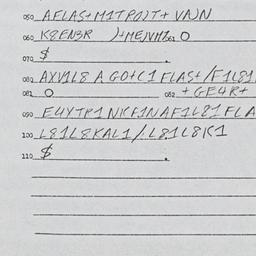 050 AFLAS+M1TPOJT+VAJN
060 K8EN3R )+MEJVMZ 061 O
070 $ .
080 AXV1L8 A GO+C1 FLAS+/F1L81
081 O 082 +GE4R+
090 E4YTP1NKF1NAF1L81FLA
100 L81L8KAL1/L81L8K1
110 $ .